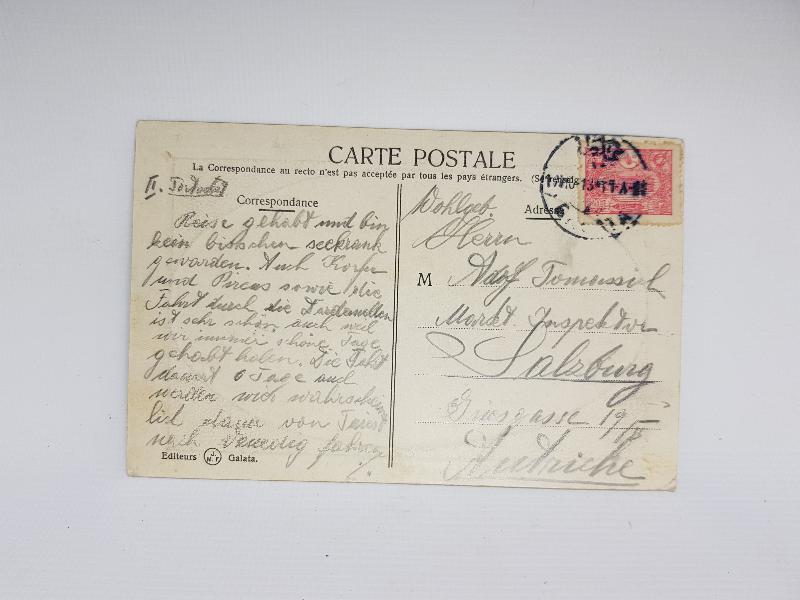 CARTE POSTALE
La Correspondance au recto n'est pas acceptée par tous les pays étrangers.
II.
Correspondance
Adresse
Reise gehabt und bin
kein bisschen seekrank
geworden. Auch Korfu
und Pireus sowie die
Fahrt durch die Dardanellen
ist sehr schön, auch weil
wir immer schöne Tage
gehabt haben. Die Fahrt
dauert 6 Tage und
werden wir wahrschein
lich dann von Triest
nach Venedig fahren
Editeurs J.M.F Galata.
Wohlgeb.
Herrn
M Adolf
Markt Inspektor
Salzburg
Griesgasse 19/II
Autriche